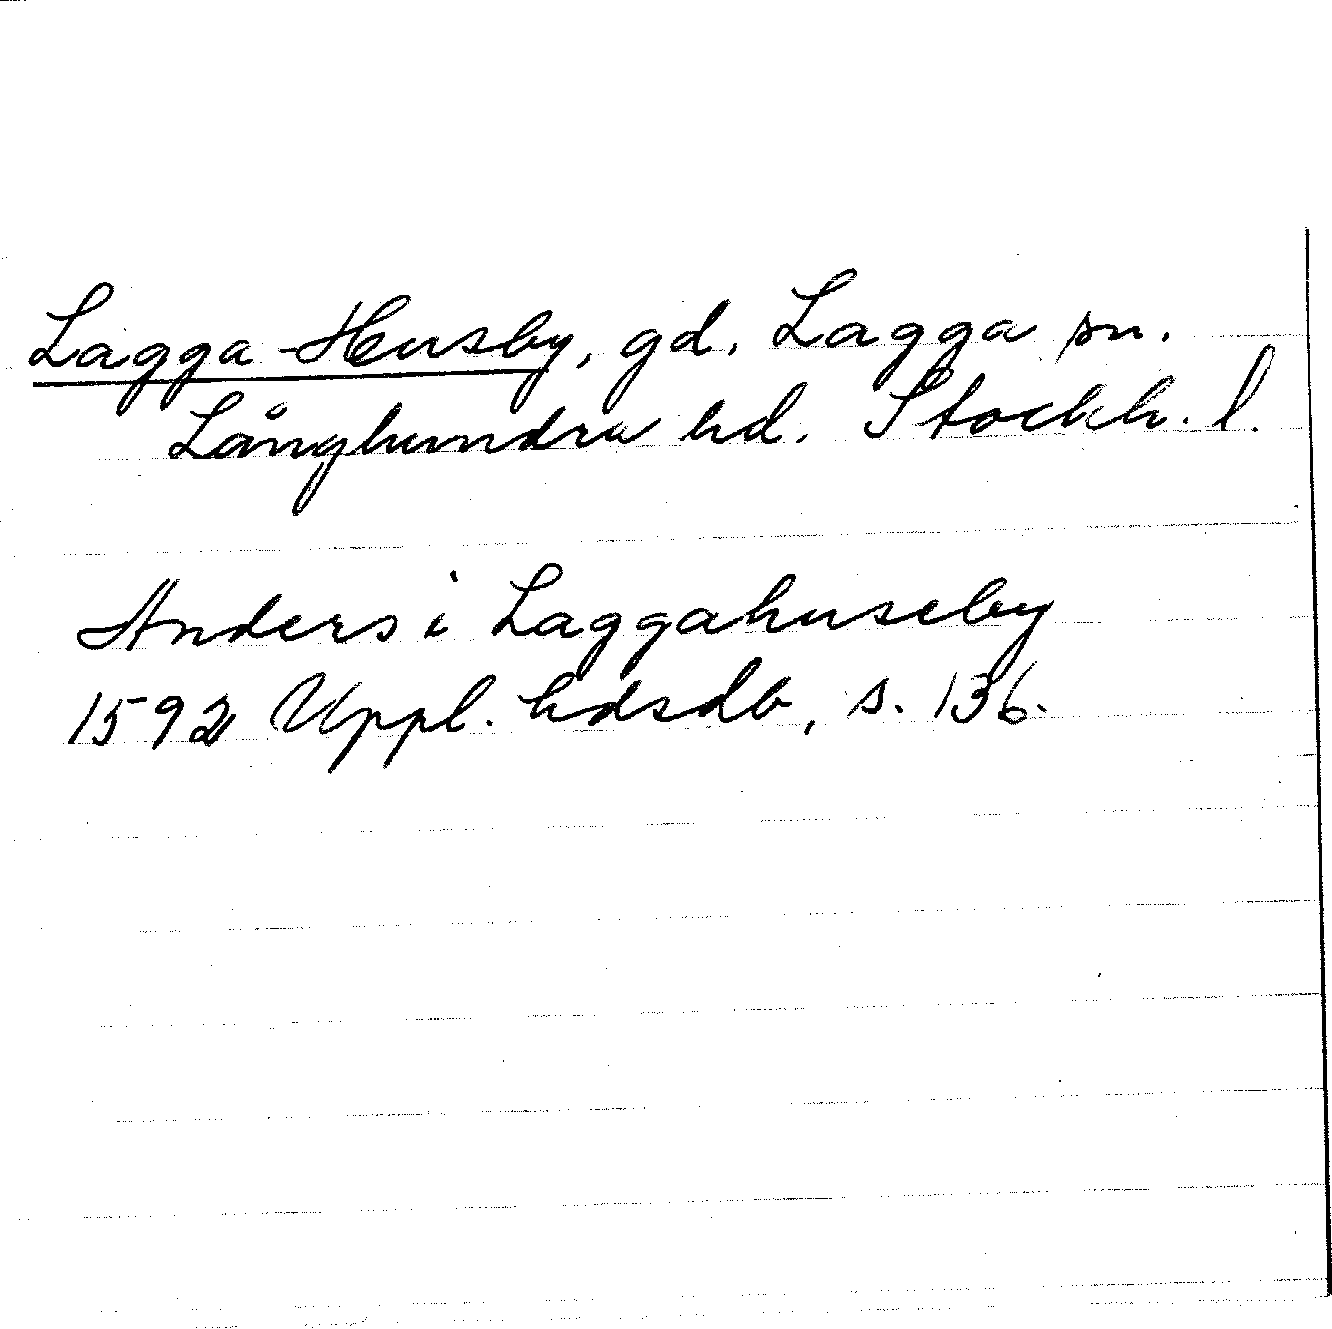 Lagga-Husby, gd, Lagga sn.
Långhundra hd. Stockh. l.
Anders i Laggahuseby
1592 Uppl. hdsdb, s. 136.